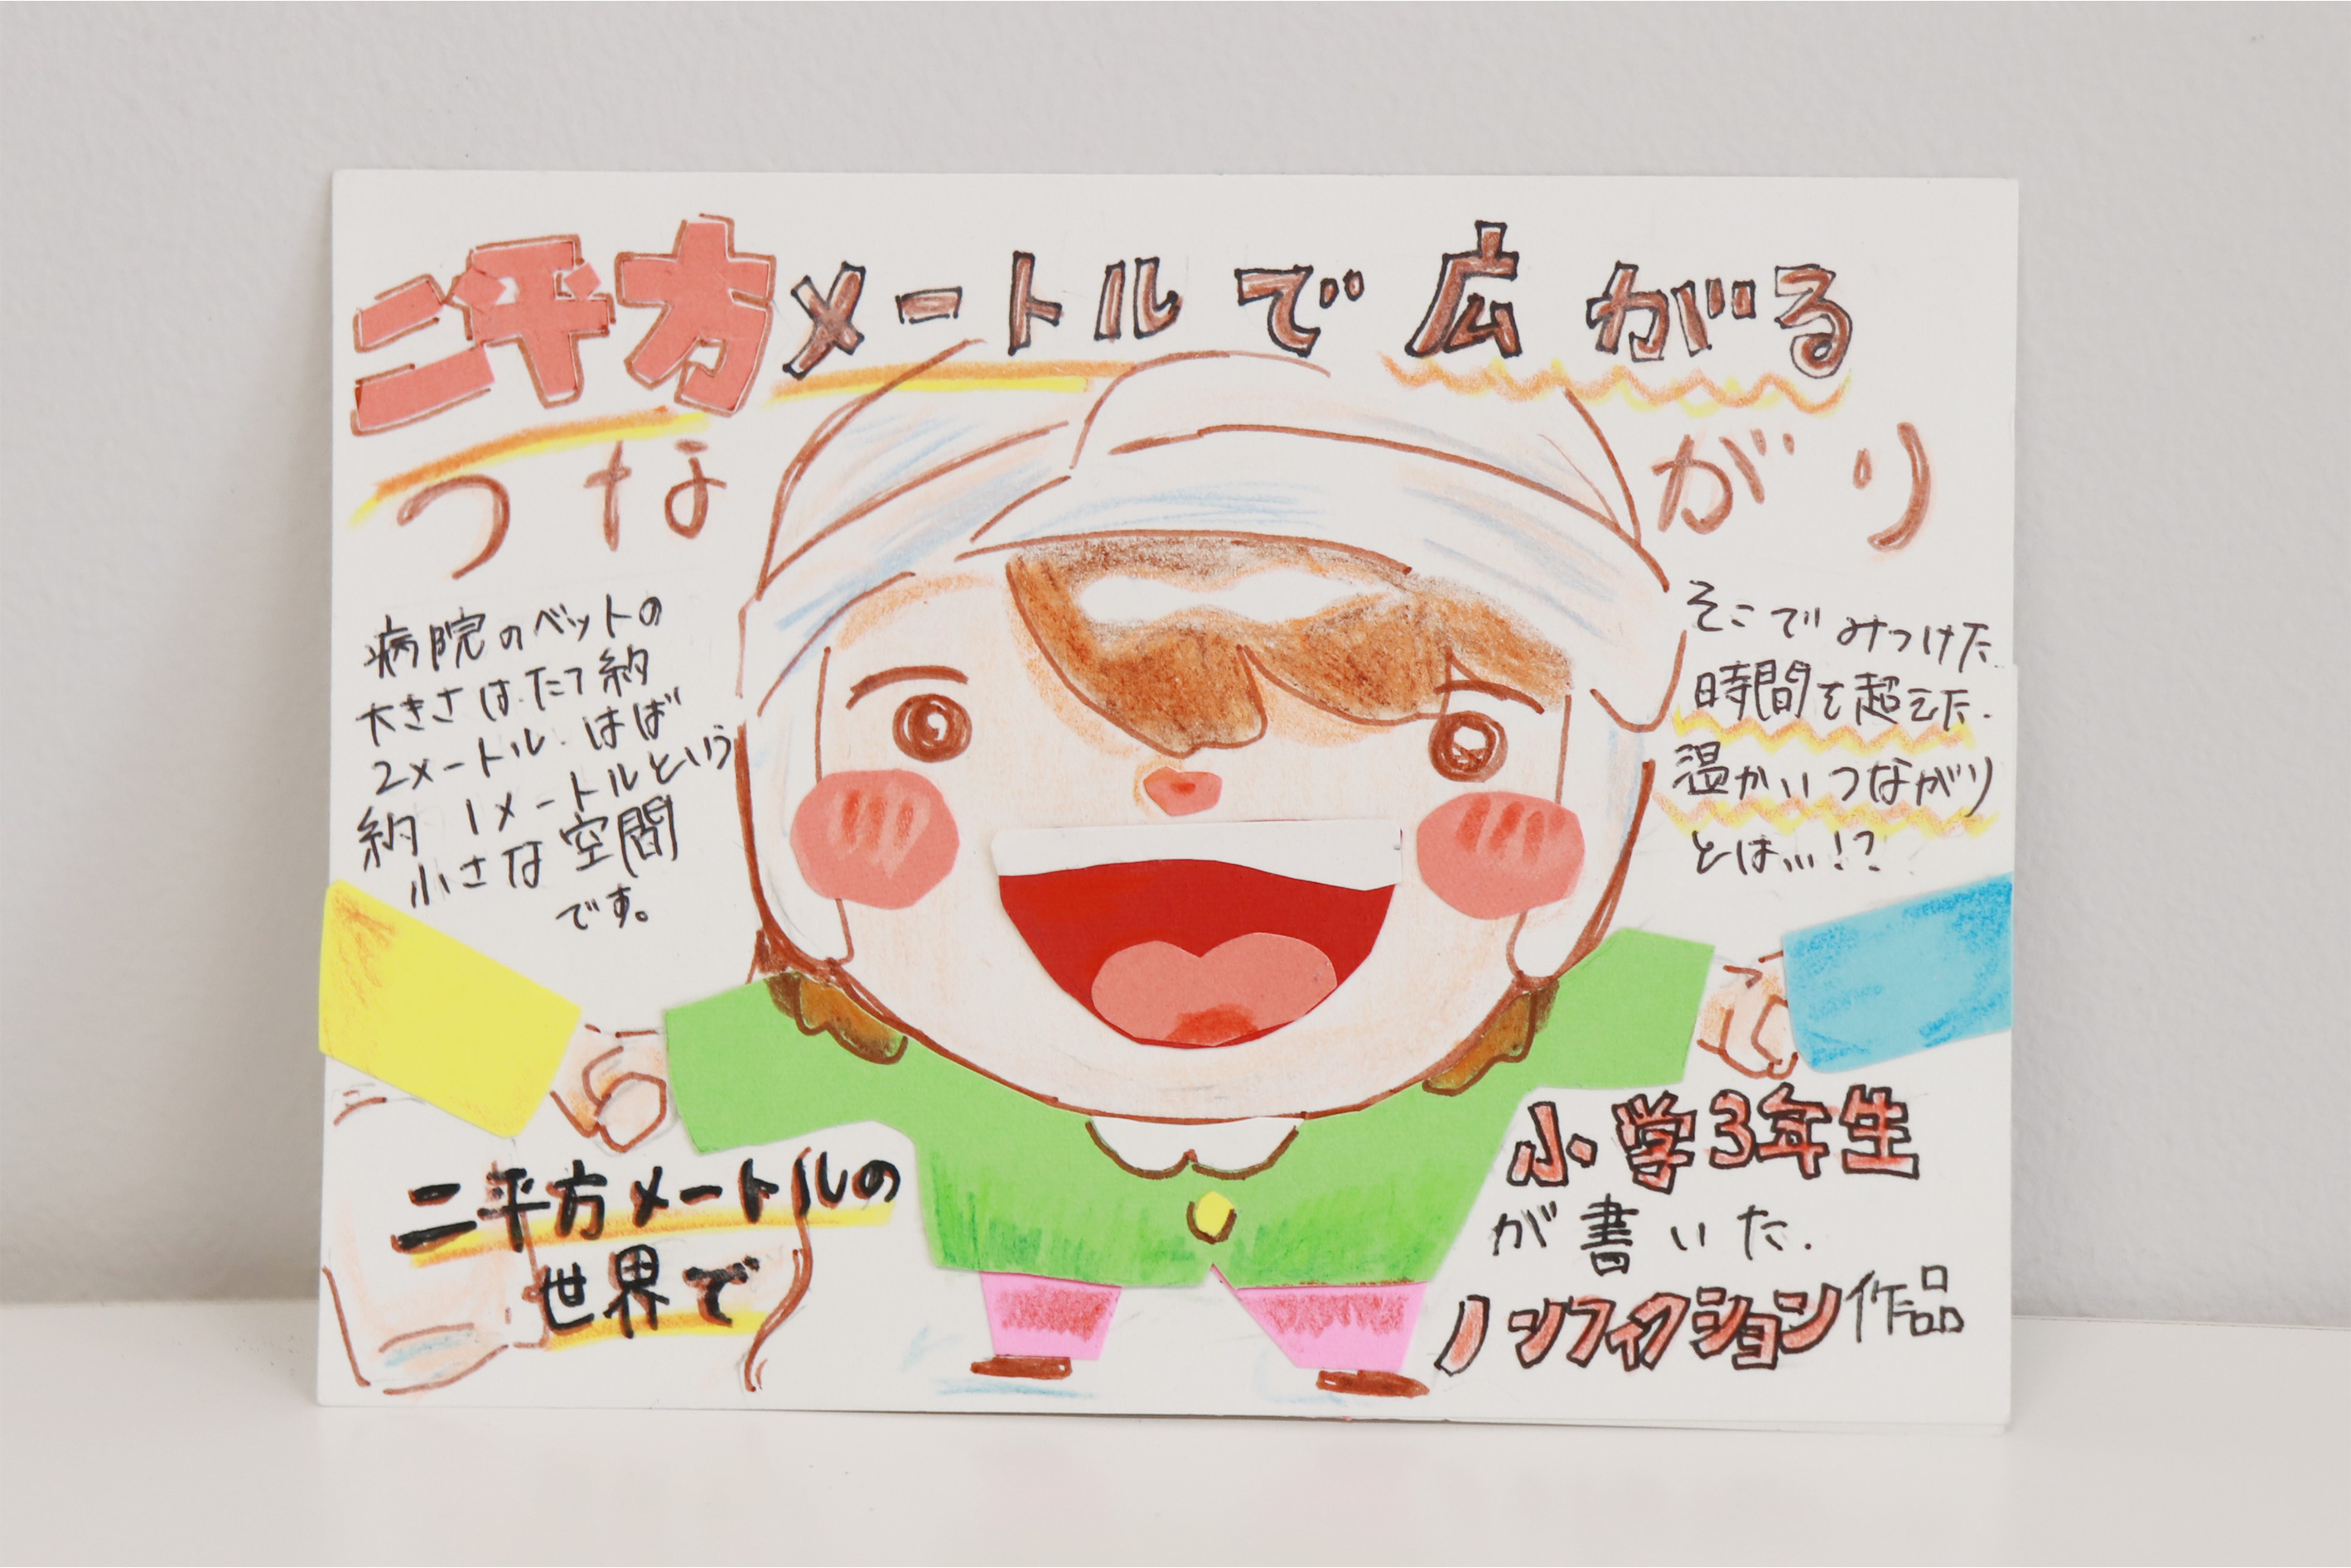 二平方メートルで広がる
つながり
病院のベットの
大きさは、たて約
2メートル、はば
約1メートルという
小さな空間
です。
そこでみつけた
時間を超えた、
温かいつながり
とは…!?
二平方メートルの
世界で
小学3年生
が書いた、
ノンフィクション作品